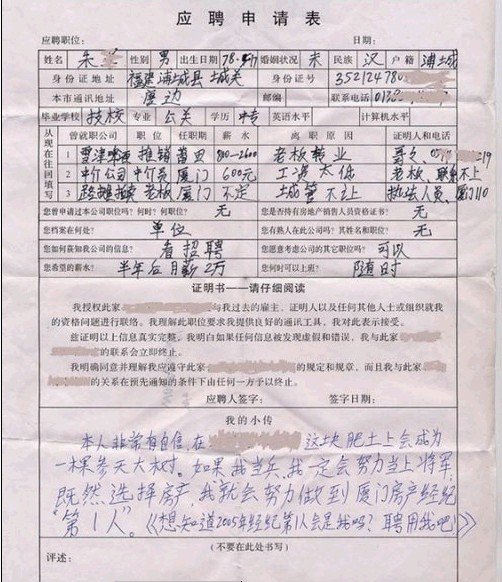 应聘申请表
应聘职位： 日期：
姓名 朱 性别 男 出生日期 78. 婚姻状况 未 民族 汉 户籍 浦城
身份证地址 福建浦城县城关 身份证号 352124780
本市通讯地址 厦边 邮编 联系电话
毕业学校 技校 专业 公关 学历 中专 英语水平 计算机水平
从现在往回填写 曾就职公司 职位 任职期 薪水 离职原因 证明人和电话
1 雪津啤酒 推销 莆田 800-2600 老板转业
2 中介公司 中介员 厦门 600元 工资太低 老板，联系不上
3 路摊 老板 厦门 不定 城管不让 执法人员，厦门110
您曾申请过本公司职位吗？何时？何职位？ 无 您是否持有房地产销售人员资格证书？ 无
您档案在何处？ 单位 您有熟人在此公司吗？其姓名和职位？ 无
您如何获知我公司的信息？ 看招聘 您愿意考虑公司的其它职位吗？ 可以
您希望的薪水？ 半年后月薪2万 您何时可以上班？ 随时
证明书——请仔细阅读
我授权此家 与我过去的雇主、证明人以及任何其他人士或组织就我
的资格问题进行联络。我理解此职位要求我提供良好的通讯工具，我对此表示接受。
兹证明以上信息真实完整。我明白如果任何信息被发现虚假和错误，我与此家
的联系会立即终止。
我明确同意并理解我应遵守此家 的规定和规章，而且我与此家
的关系在预先通知的条件下由任何一方予以终止。
应聘人签字： 签字日期：
我的小传
本人非常有自信，在 这块肥土上会成为
一棵参天大树。如果我当兵，我一定会努力当上将军，
既然选择房产，我就会努力做到厦门房产经纪
“第1人”。《想知道2005年经纪第1人会是我吗？聘用我吧！》
（不要在此处书写）
评述：